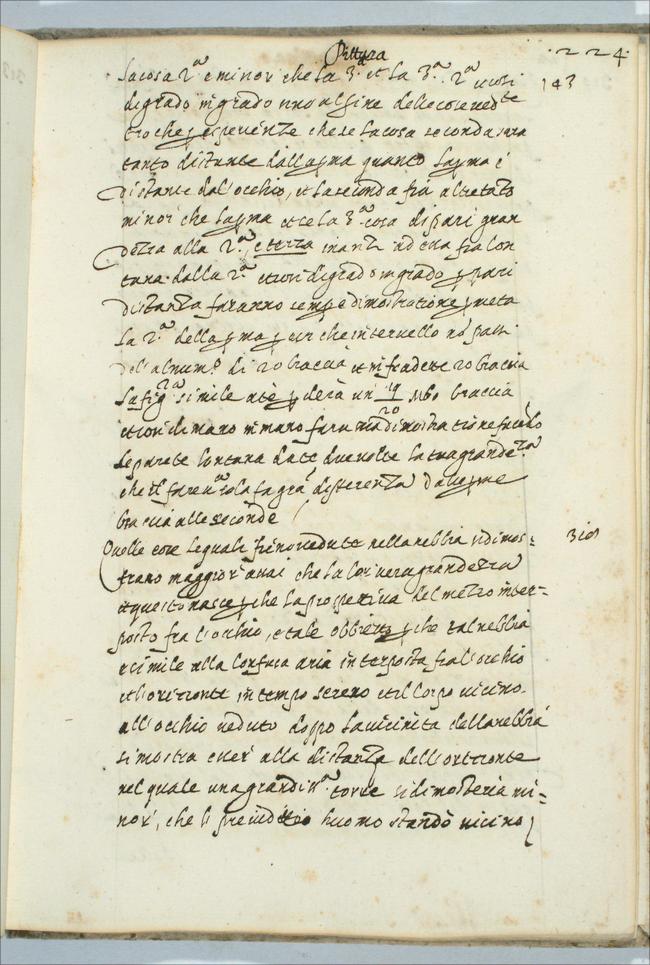 Pittura
.224.
la cosa 2.ª e minor che la 3.ª et la 3.ª 2.ª così 143
di grado in grado insino al fine delle cose vedute
esperienze che se la cosa seconda sara
tanto distante dalla pma quanto la pma é
distante dal'occhio, et la seconda fia altretato
minor che la pma et se la 3.ª cosa di pari gran
dezza alla 2.ª e terza inanz ad ena fia lon
tana dalla 2.ª et cosi di grado in grado p pari
distanza faranno sempe dimostratione p meta
la 2.ª della pma p cui che intervello nō passi
del' al num.º di 20 braccia et infra dette 20 braccia
la fig.ra simile a te pdera un 19/20 braccia
et cosi di mano in mano fara ma dimostratione facedo
le parete lontana da te due volte la tua grandezza
che il fare sola fa grā differenza dalle pme
braccia alle seconde
Quelle cose le quali fieno vedute nella nebbia si dimos= 310
trano maggior' assai che la lor vera grandezza
et questo nasce p che la prospettiva del mezzo inter-
posto fra l'occhio, e tale obbietto p che tal nebbia
e simile alla confusa aria interposta fra l'occhio
et l'orizzonte in tempo sereno et il corpo vicino
all'occhio veduto doppo la vicinita della nebbia
si mostra esser' alla distanza dell'orizzonte
nel quale una grandiss.ª torre si dimosteria mi=
nor', che il huomo stando vicino